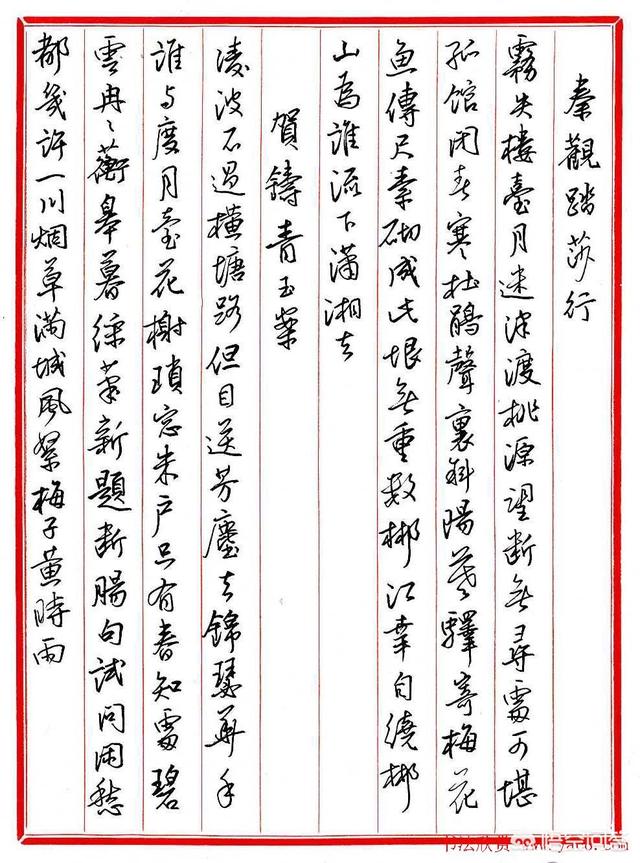 秦觀踏莎行
霧失樓臺月迷津渡桃源望断無尋處可堪
孤馆闭春寒杜鵑聲裏斜陽暮驛寄梅花
魚傳尺素砌成此恨無重数郴江幸自繞郴
山為誰流下瀟湘去
賀鑄青玉案
凌波不過橫塘路但目送芳塵去錦瑟華年
誰与度月臺花榭瑣窓朱户只有春知處碧
雲冉〻蘅皋暮綵筆新題断腸句試问闲愁
都幾許一川烟草滿城風絮梅子黄時雨
悟空问答